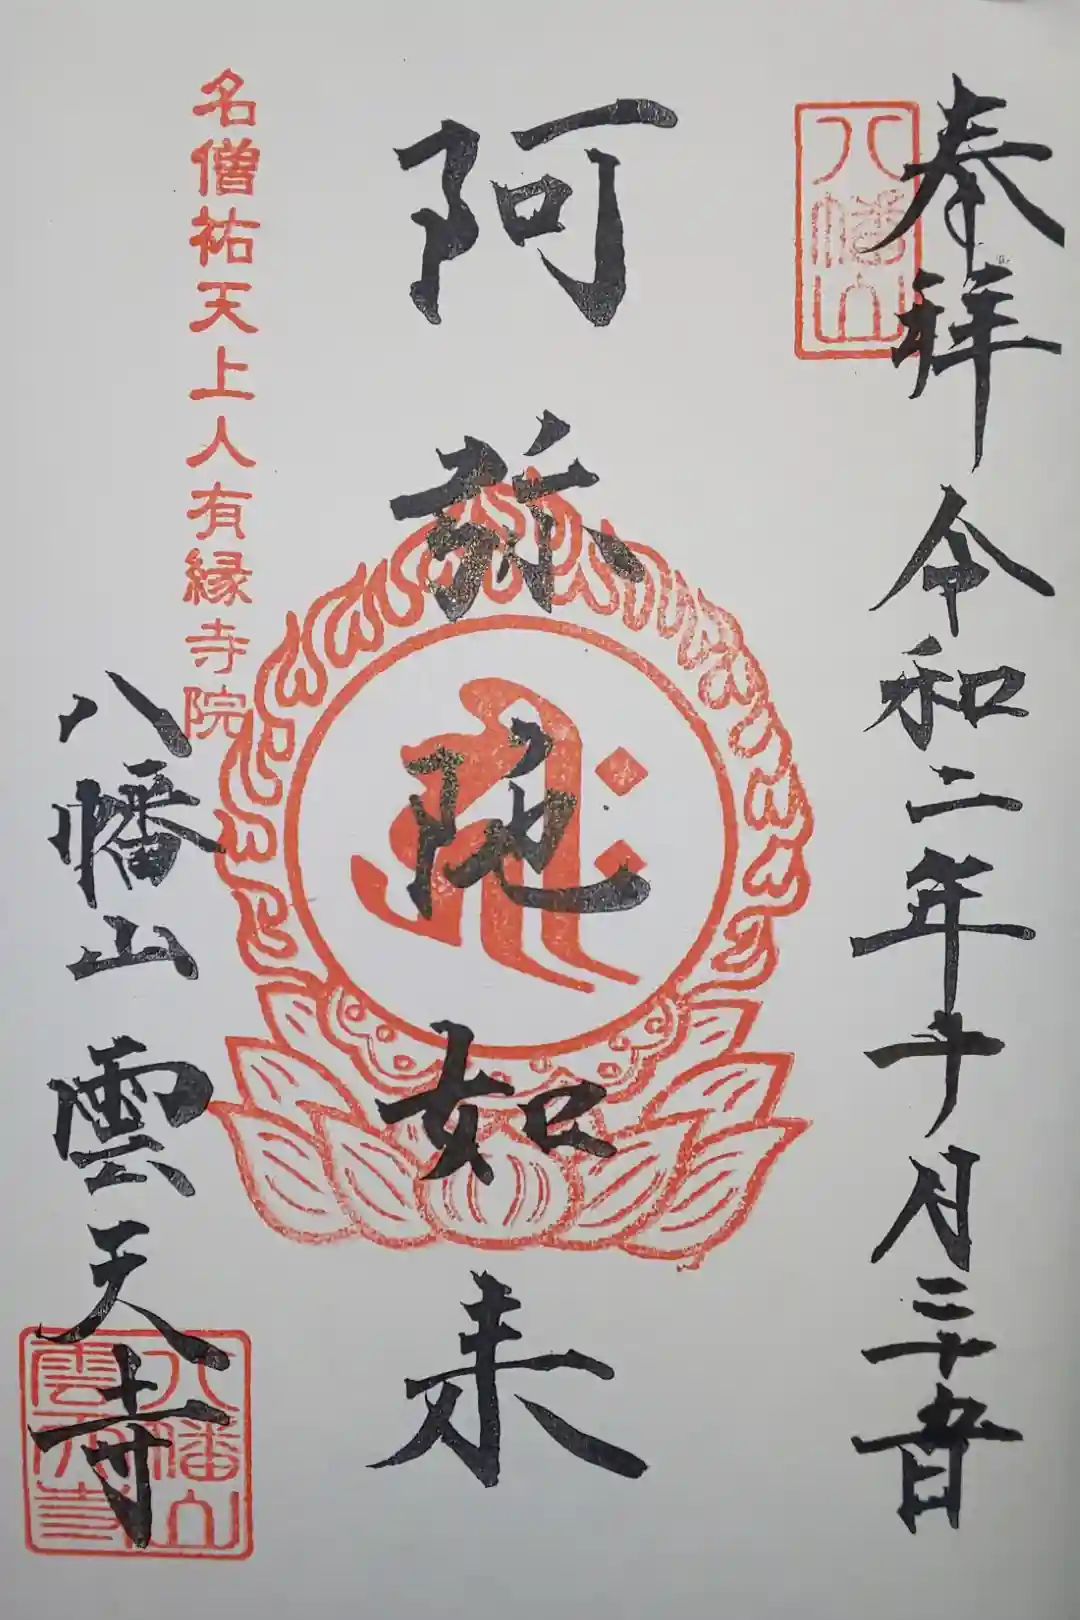 奉拝 令和二年十月二十日
八幡山
阿弥陀如来
名僧祐天上人有縁寺院
八幡山 雲天寺
八幡山
雲天寺